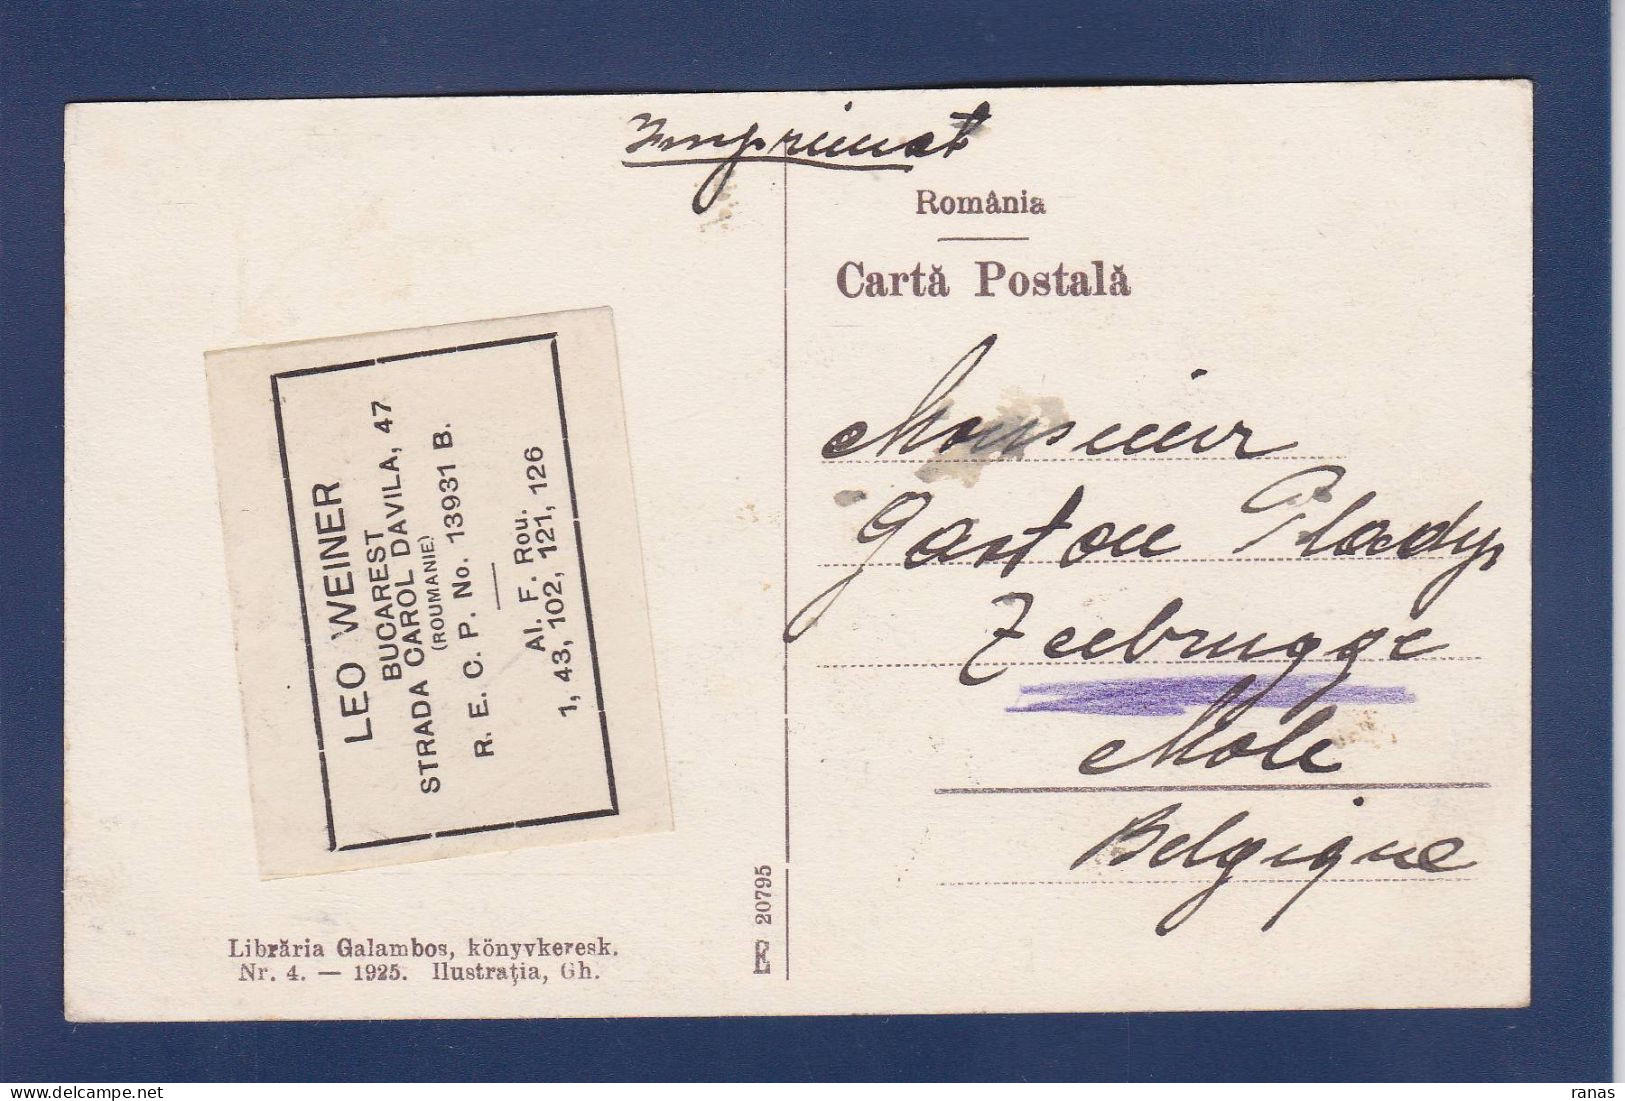 Imprimat
România
Cartă Postală
Monsieur
Gaston Pladys
Zeebrugge
Mole
Belgique
LEO WEINER
BUCAREST
STRADA CAROL DAVILA, 47
(ROUMANIE)
R. E. C. P. No. 13931 B.
Al. F. Rou.
1, 43, 102, 121, 126
Librăria Galambos, könyvkeresk.
Nr. 4. — 1925. Ilustrația, Gh.
E 20795
ranas